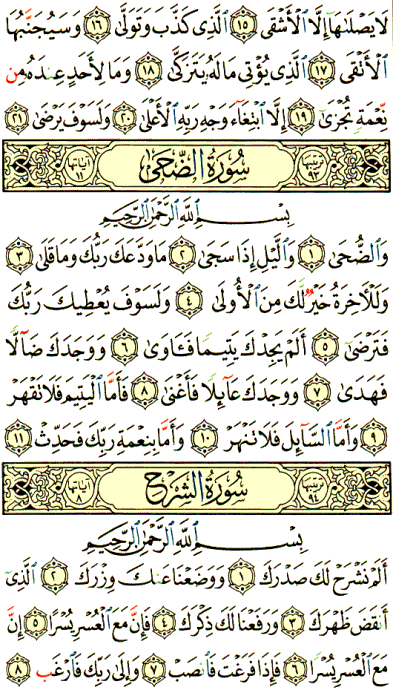 لَا يَصْلَىٰهَآ إِلَّا ٱلْأَشْقَى ١٥ ٱلَّذِى كَذَّبَ وَتَوَلَّىٰ ١٦ وَسَيُجَنَّبُهَا
ٱلْأَتْقَى ١٧ ٱلَّذِى يُؤْتِى مَالَهُۥ يَتَزَكَّىٰ ١٨ وَمَا لِأَحَدٍ عِندَهُۥ مِن
نِّعْمَةٍ تُجْزَىٰٓ ١٩ إِلَّا ٱبْتِغَآءَ وَجْهِ رَبِّهِ ٱلْأَعْلَىٰ ٢٠ وَلَسَوْفَ يَرْضَىٰ ٢١
ترتيبها ٩٣ سُورَةُ الضُّحَىٰ آياتها ١١
بِسْمِ ٱللَّهِ ٱلرَّحْمَٰنِ ٱلرَّحِيمِ
وَٱلضُّحَىٰ ١ وَٱلَّيْلِ إِذَا سَجَىٰ ٢ مَا وَدَّعَكَ رَبُّكَ وَمَا قَلَىٰ ٣
وَلَلْـَٔاخِرَةُ خَيْرٌ لَّكَ مِنَ ٱلْأُولَىٰ ٤ وَلَسَوْفَ يُعْطِيكَ رَبُّكَ
فَتَرْضَىٰٓ ٥ أَلَمْ يَجِدْكَ يَتِيمًا فَـَٔاوَىٰ ٦ وَوَجَدَكَ ضَآلًّا
فَهَدَىٰ ٧ وَوَجَدَكَ عَآئِلًا فَأَغْنَىٰ ٨ فَأَمَّا ٱلْيَتِيمَ فَلَا تَقْهَرْ
٩ وَأَمَّا ٱلسَّآئِلَ فَلَا تَنْهَرْ ١٠ وَأَمَّا بِنِعْمَةِ رَبِّكَ فَحَدِّثْ ١١
ترتيبها ٩٤ سُورَةُ الشَّرْحِ آياتها ٨
بِسْمِ ٱللَّهِ ٱلرَّحْمَٰنِ ٱلرَّحِيمِ
أَلَمْ نَشْرَحْ لَكَ صَدْرَكَ ١ وَوَضَعْنَا عَنكَ وِزْرَكَ ٢ ٱلَّذِىٓ
أَنقَضَ ظَهْرَكَ ٣ وَرَفَعْنَا لَكَ ذِكْرَكَ ٤ فَإِنَّ مَعَ ٱلْعُسْرِ يُسْرًا ٥ إِنَّ
مَعَ ٱلْعُسْرِ يُسْرًا ٦ فَإِذَا فَرَغْتَ فَٱنصَبْ ٧ وَإِلَىٰ رَبِّكَ فَٱرْغَب ٨